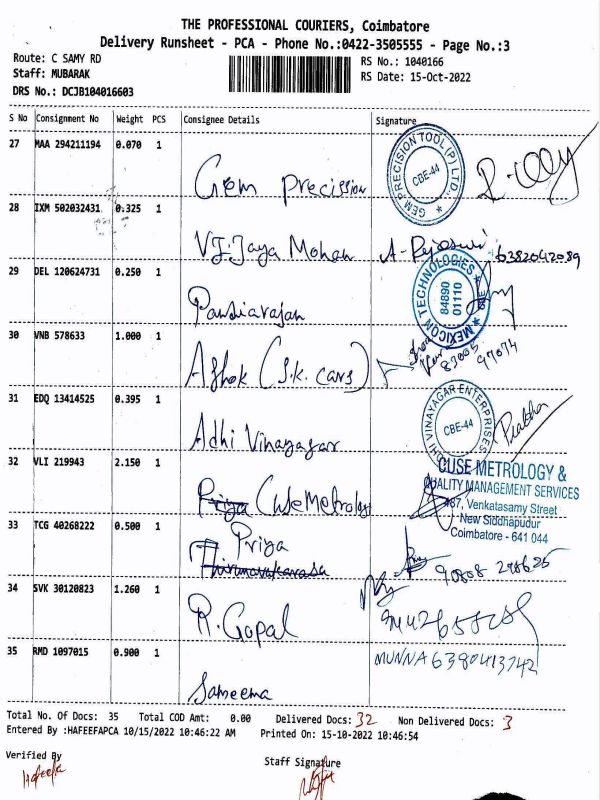 THE PROFESSIONAL COURIERS, Coimbatore
Delivery Runsheet - PCA - Phone No.:0422-3505555 - Page No.:3
Route: C SAMY RD
RS No.: 1040166
Staff: MUBARAK
RS Date: 15-Oct-2022
DRS No.: DCJB104016603
S No Consignment No Weight PCS Consignee Details Signature
27 MAA 294211194 0.070 1
Gem Precission
GEM PRECISION TOOL (P) LTD., CBE-44
28 IXM 502032431 0.325 1
V.J. Jaya Mohan
6382042089
29 DEL 120624731 0.250 1
Pandiarajan
MEXICON TECHNOLOGIES
84890
01110
30 VNB 578633 1.000 1
Ashok (S.K. cars)
83005
97074
31 EDQ 13414525 0.395 1
Adhi Vinayagar
ADHI VINAYAGAR ENTERPRISES CBE-44
Prabha
32 VLI 219943 2.150 1
Priya
CUSE METROLOGY &
QUALITY MANAGEMENT SERVICES
Venkatasamy Street
New Siddhapudur
Coimbatore - 641 044
33 TCG 40268222 0.500 1
Priya
34 SVK 30120823 1.260 1
R. Gopal
35 RMD 1097015 0.900 1
MUNNA 6380413742
Sameema
Total No. Of Docs: 35 Total COD Amt: 0.00 Delivered Docs: 32 Non Delivered Docs: 3
Entered By :HAFEEFAPCA 10/15/2022 10:46:22 AM Printed On: 15-10-2022 10:46:54
Verified By
Staff Signature
Hafeefa